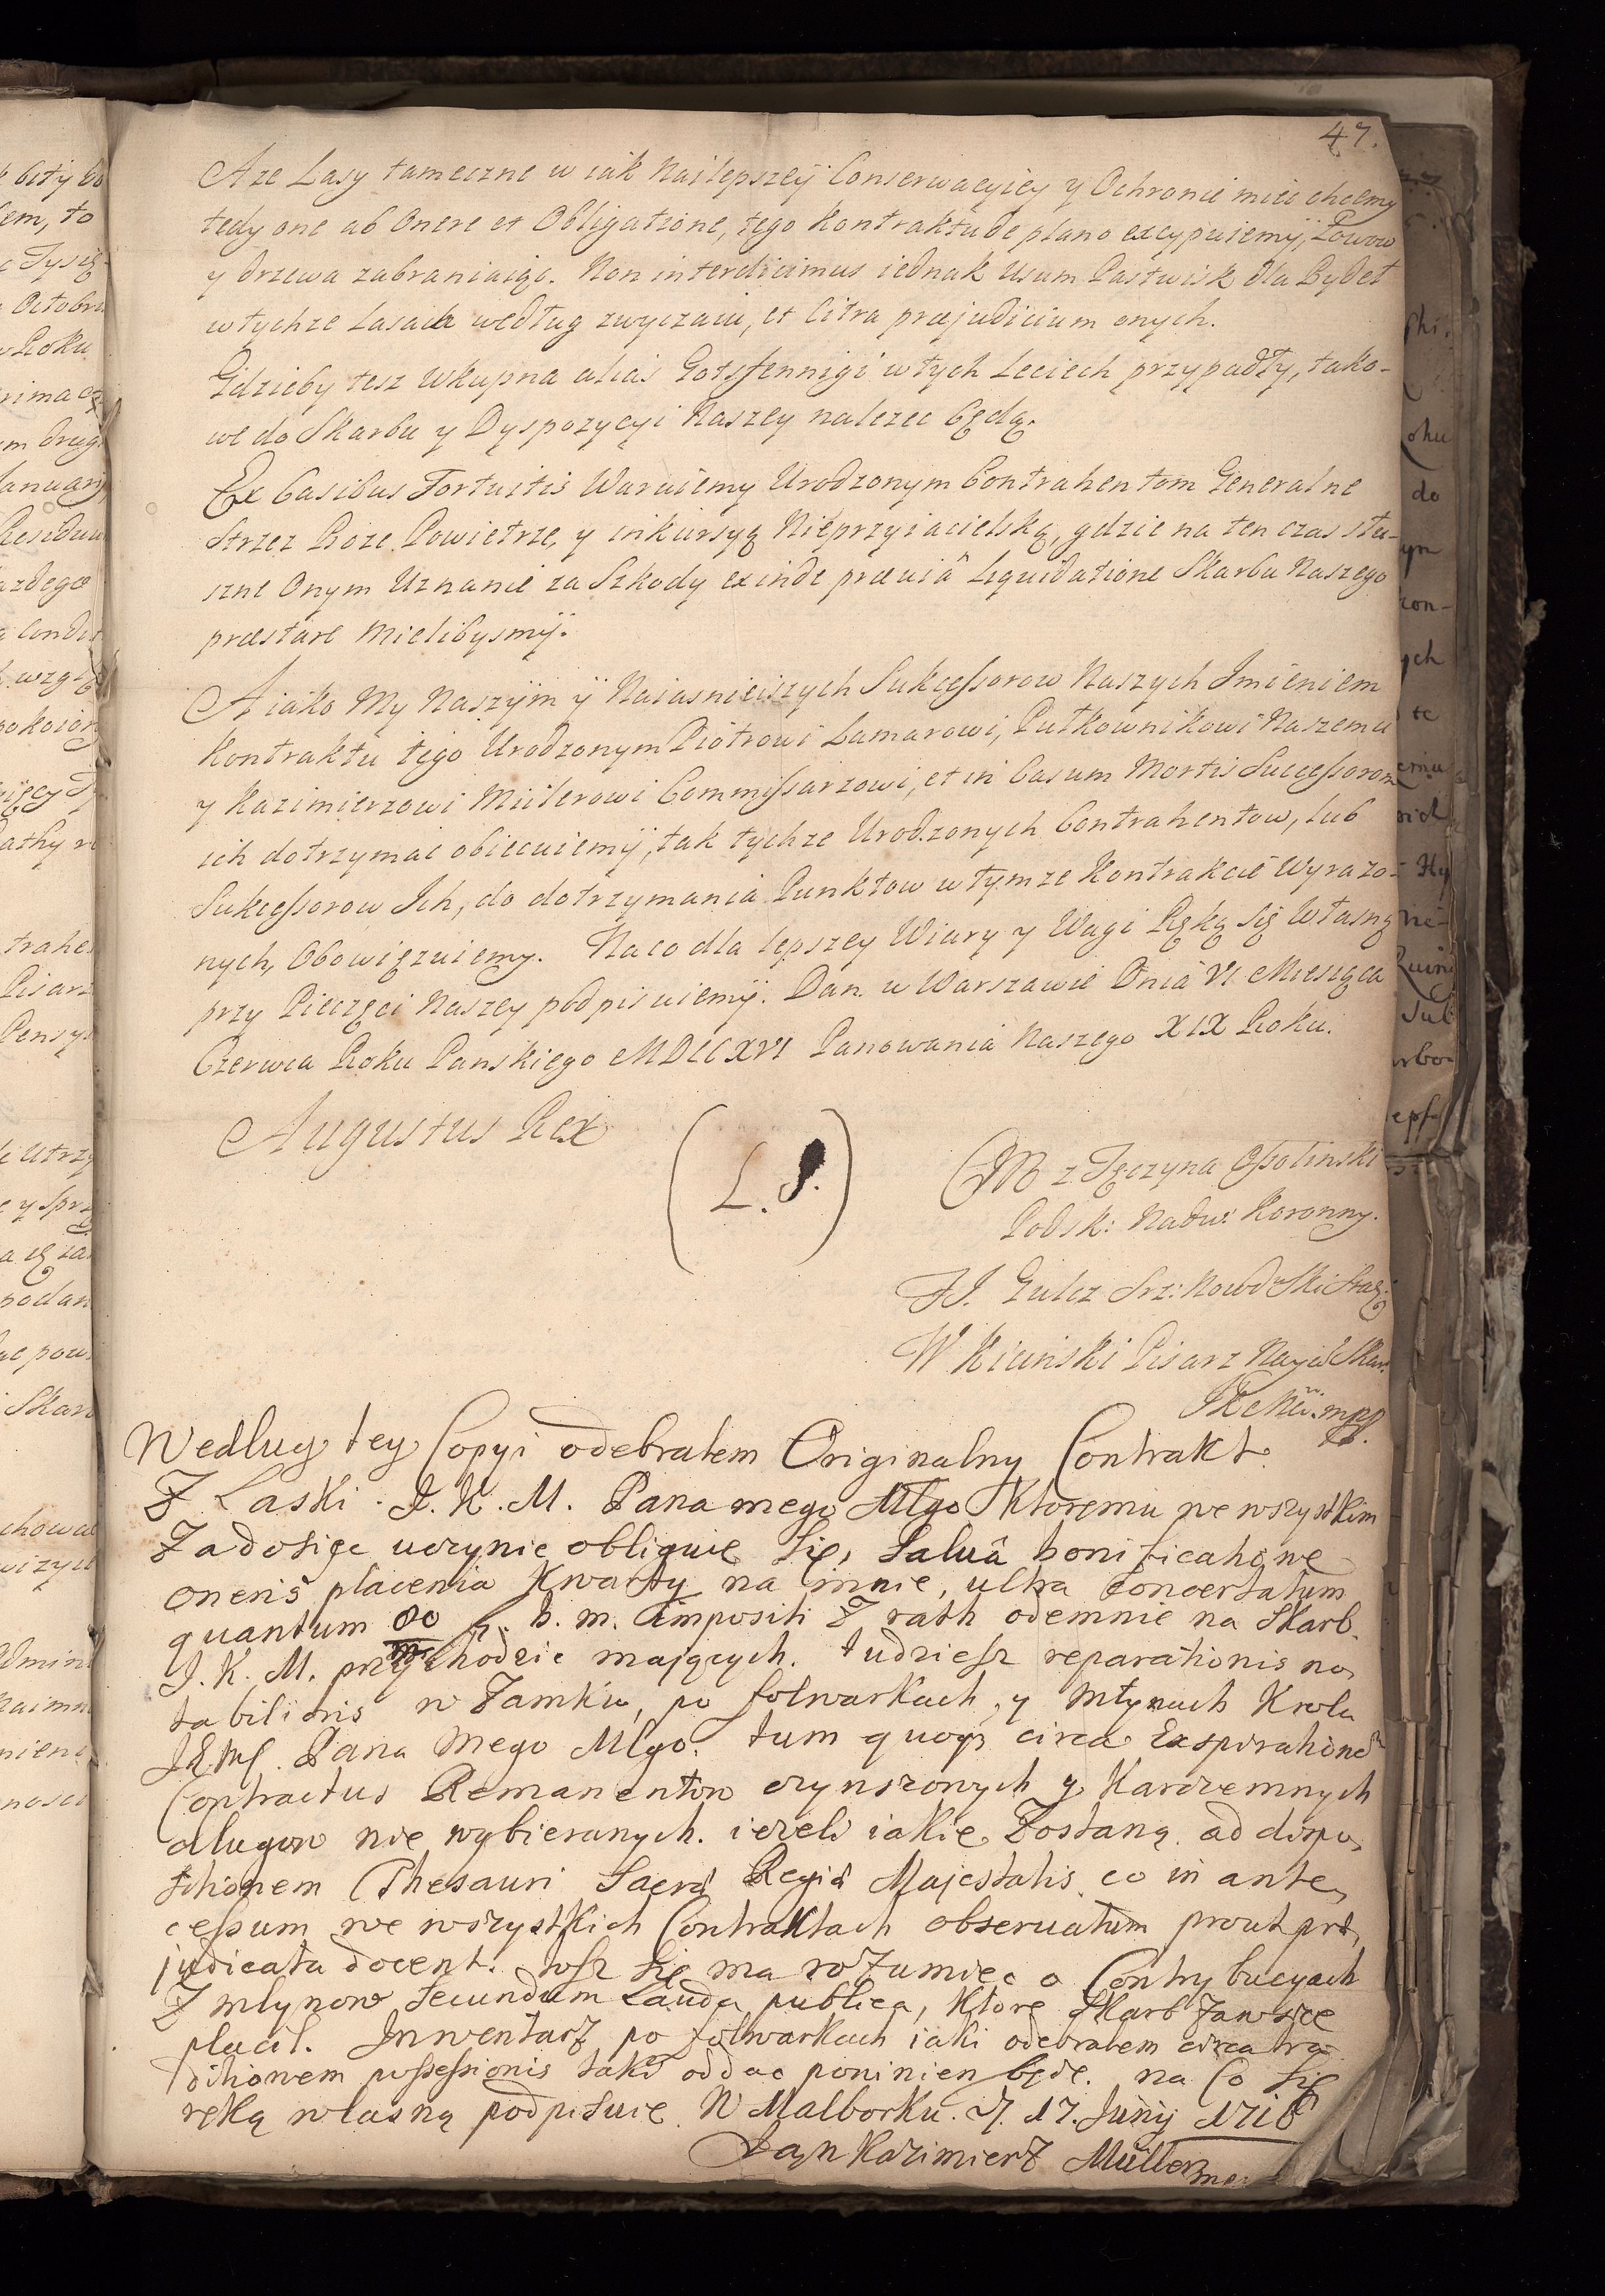 47.
A ze Lasy tameczne w iak Nailepszeÿ Conserwacyiey y Ochronie mieć chcemy
tedy one ab Onere et Obligatione, tego Kontraktu de plano excypuiemÿ, Łowow
y drzewa zabraniaiąc. Non interdicimus iednak Usum Pastwisk dla Bydeł
w tychze Lasach według zwyczaiu, et Citra præjudicium onych.
Gdzieby tesz Wkupna alias Gotsfennigi w tych Leciech przypadły, tako-
we do Skarbu y Dyspozycyi Naszey nalezec będą.
Ex Casibus Fortuitis Waruiemy Urodzonym Contrahentom Generalne
Strzez Boze Powietrze, y inkursyą Nieprzyiacielską, gdzie na ten czas słu-
szne Onym Uznanie za Szkody exinde præviâ Liquidatione Skarbu Naszego
præstare mielibysmÿ.
A iako My Naszÿm ÿ Naiasnieiszych Sukcessorow Naszych Imieniem
Kontraktu tego Urodzonym Piotrowi Lamarowi, Pułkownikowi Naszemu
y Kazimierzowi Millerowi Commissarzowi, et in Casum Mortis Successorom
ich dotrzymac obiecuiemÿ, tak tychze Urodzonych Contrahentow, lub
Sukcessorow Ich, do dotrzymania Punktow w tymze Kontrakcie Wyrazo-
nych, Obowięzuiemy. Na co dla lepszey Wiary y Wagi Ręką się Własną
przy Pieczęci Naszey podpisuiemÿ. Dan. w Warszawie Dnia VI Miesiąca
Czerwca Roku Panskiego MDCCXVI Panowania Naszego XIX Roku.
Augustus Rex
(L. S.)
z Tęczyna Ossolinski
Podsk: Nadw: Koronny.
W Kicinski Pisarz
mpp.
Wedlug tey Copyi odebralem Originalny Contrakt
Z Laski J. K. M. Pana mego Mlgo Ktoremu we wszystkim
Zadosięc uczynic obliguię Się, Salvâ bonificatione
oneris placenia Kwarty na mnie, ultra concertatum
quantum b. m. impositi Z rath odemnie na Skarb.
J. K. M. przychodzic mających. tudziesz reparationis no,
tabilioris w Zamku, po folwarkach, y młynach Krola
Pana Mego Mlgo. tum quoqz circa Expirationem
Contractus Remanentow czynszowych y Karczemnych
dlugow nie wybieranych. iezeli iakie Zostaną ad dispo,
sitionem Thesauri Sacræ Regiæ Majestatis co in ante,
cessum we wszystkich Contraktach observatum prout præ,
judicata docent. tosz Się ma rozumiec o Contrybucyach
Z mlynow secundum Lauda publica, Ktore Skarb Zawsze
placil. Inwentarz po folwarkach iaki odebralem circa tra
ditionem possessionis taki oddac powinien będę. na Co Się
ręką wlasną podpisuię W Malborku. D. 17. Junÿ 1716
Jan Kazimierz Müller